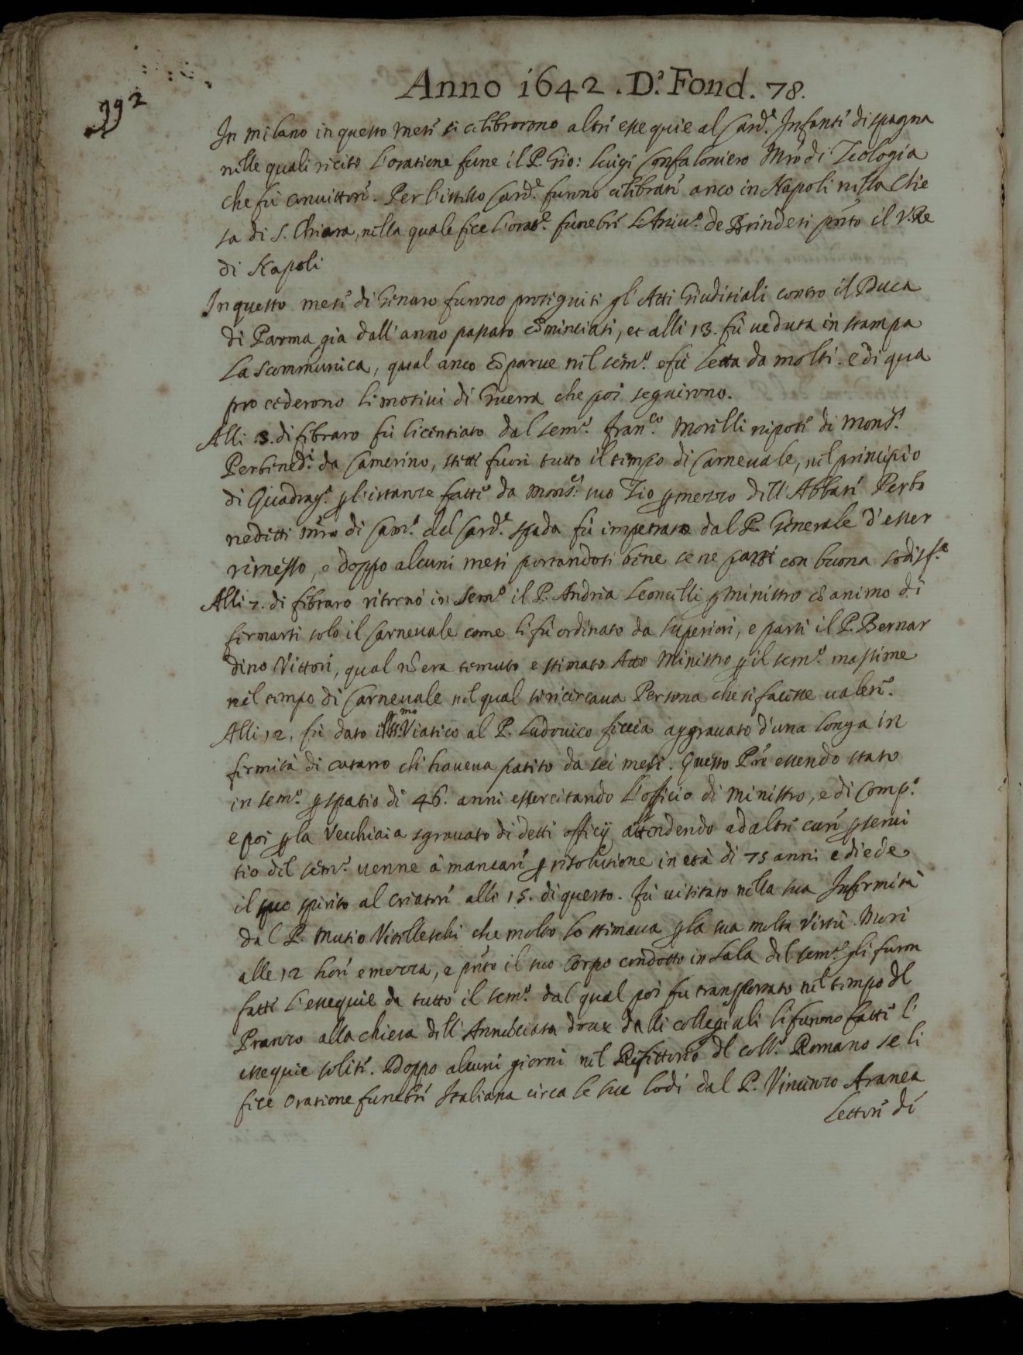 392
Anno 1642. D.ª Fond. 78.
In Milano in questo mese si celibrorono altre essequie al Card.e Infante di spagna
nelle quali recitò l'oratione fune il P. Gio: Luigi Confaloniero Mrō di Teologia
che fù convittore. Per l'istesso Card.e furono celibrate anco in Napoli nella Chie
sa di S. Chiara, nella quale fece l'orat.e funebre l'Arciv.o de Brindesi pñte il V.Re
di Napoli
In questo mese di Genaro furono proseguiti gl'Atti Giuditiali contro il Duca
di Parma già dall'anno passato cōminciati, et alli 13. fù veduta in stampa
la scommunica, qual anco cōparve nel sem.o e fù letta da molti. e di qua
procederono li motivi di Guerra che poi seguirono.
Alli 3. di febraro fù licentiato dal sem.o Fran.co Morelli nipote di Mons.r
Perbened.i da Camerino, stette fuori tutto il tempo di Carnevale, nel principio
di Quadrag.a p l'istanze fatte da Mons.r suo Zio p mezzo dell'Abbate Perbe
neditti mrō di Cam.a del Card.e Spada fù impetrato dal P. Generale d'esser
rimesso, e doppo alcuni mesi portandosi bene se ne partì con buona sodisf.e
Alli 7. di febraro ritornò in sem.o il P. Andrea Leoncelli p ministro cō animo di
fermarsi solo il Carnevale come li fù ordinato da superiori, e partì il P. Bernar
dino Vittori, qual nō era temuto e stimato Atto Ministro p il sem.o massime
nel tempo di Carnevale nel qual si ricircava Persona che si facesse valere.
Alli 12. fù dato il SS.mo Viatico al P. Ludovico ficcia aggravato d'una longa in
firmità di catarro ch haveva patito da sei mesi. Questo Prē essendo stato
in sem.o p spatio di 46. anni essercitando l'officio di Ministro, e di Comp.o
e poi p la Vecchiaia sgravato di detti officij attendendo ad altre cure p servi
tio del sem.o venne à mancare p risolutione in età di 75 anni e diede
il suo spirito al Criatore alli 15. di questo. Fù visitato nella sua Infermità
dal P. Mutio Vitelleschi che molto lo stimava p la sua molta Virtù. Morì
alle 12 hore e mezza, e pñte il suo Corpo condotto in Sala del sem.o gli furon
fatte l'essequie da tutto il sem.o dal qual poi fu transportato nel tempo del
Pranzo alla chiesa dell'Annūciata dove dalli collegiali li furono fatte l'
essequie solite. Doppo alcuni giorni nel Refittorio del coll.o Romano se li
fece Oratione funebre Italiana circa le sue lodi dal P. Vincenzo Aranea
Lettore di